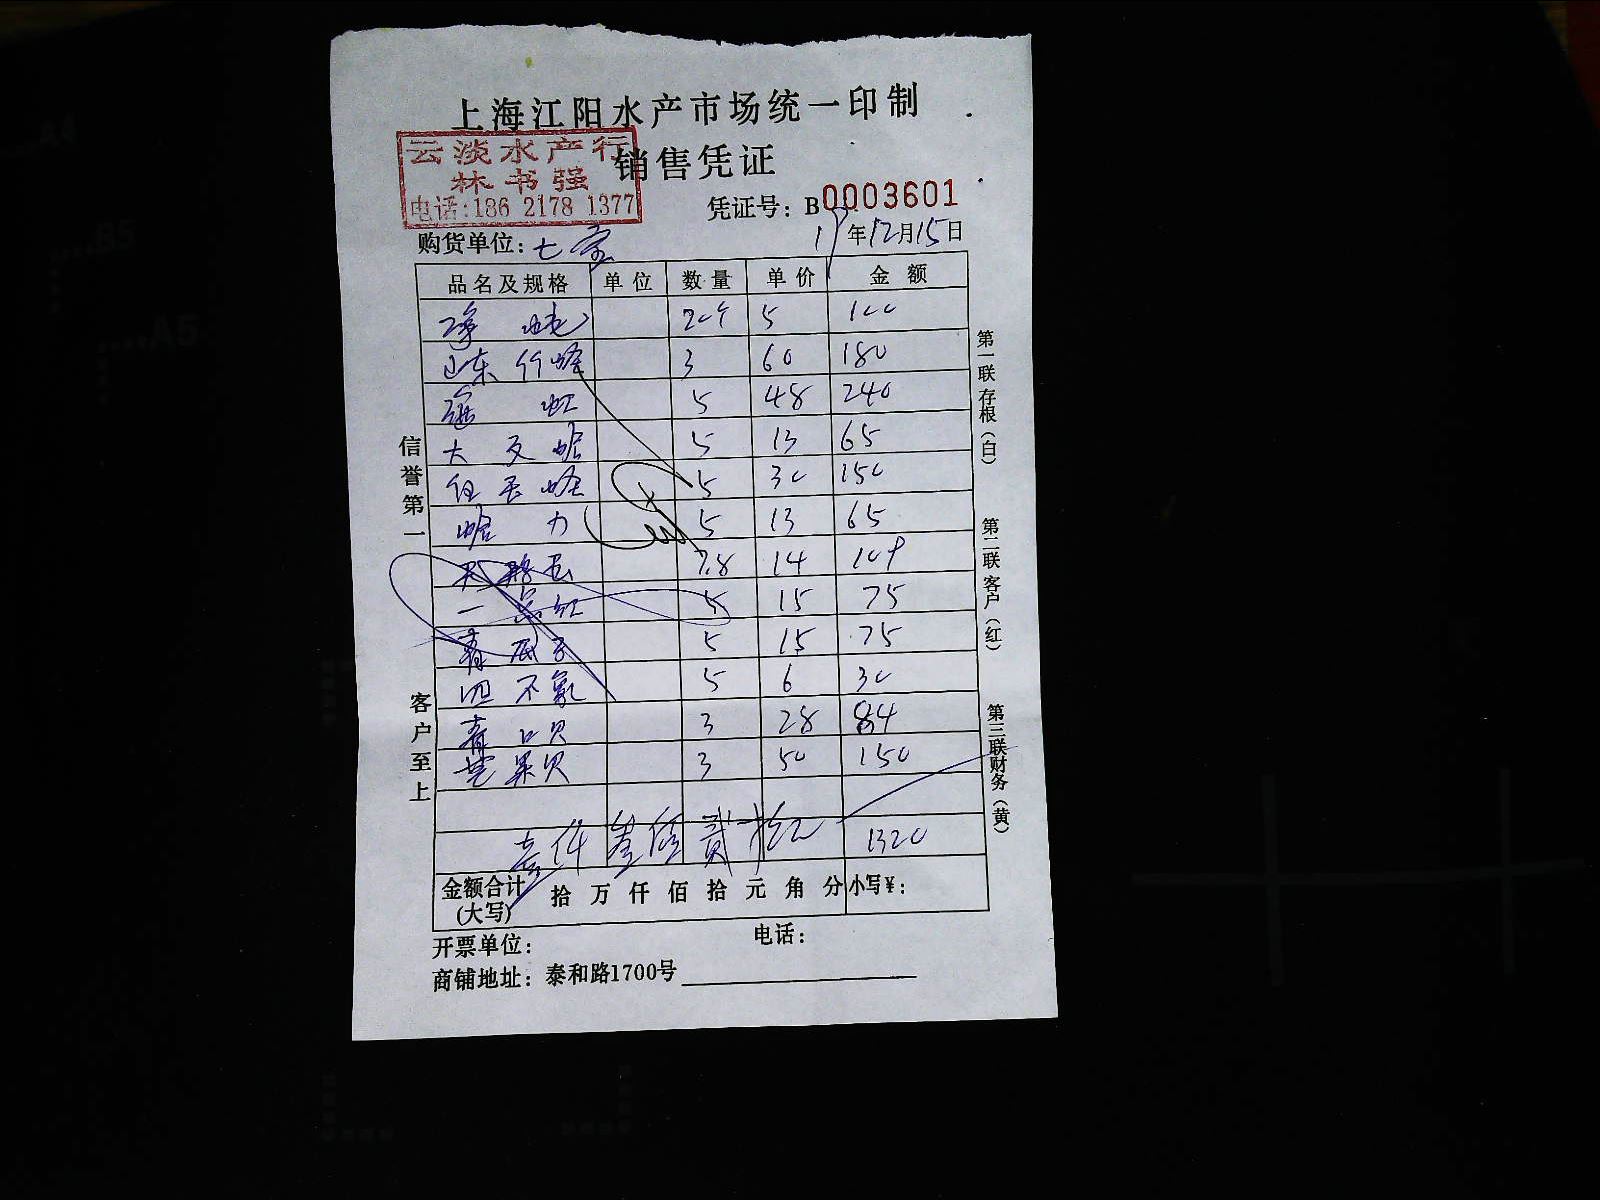 上海江阳水产市场统一印制
云淡水产行
销售凭证
林书强
电话:186 2178 1377
凭证号: B0003601
购货单位: 七宝
年12月15日
品名及规格 单位 数量 单价 金额
20个 5 100
山东竹蛏 3 60 180
5 48 240
大 蛤 5 13 65
蛏 5 30 150
蛤 力 5 13 65
7.8 14 109
一品红 5 15 75
青 子 5 15 75
四不象 5 6 30
青口贝 3 28 84
贝 3 50 150
壹仟叁佰贰拾元 1320
金额合计 拾 万 仟 佰 拾 元 角 分 小写¥:
(大写)
开票单位: 电话:
商铺地址: 泰和路1700号
信誉第一
客户至上
第一联存根(白)
第二联客户(红)
第三联财务(黄)